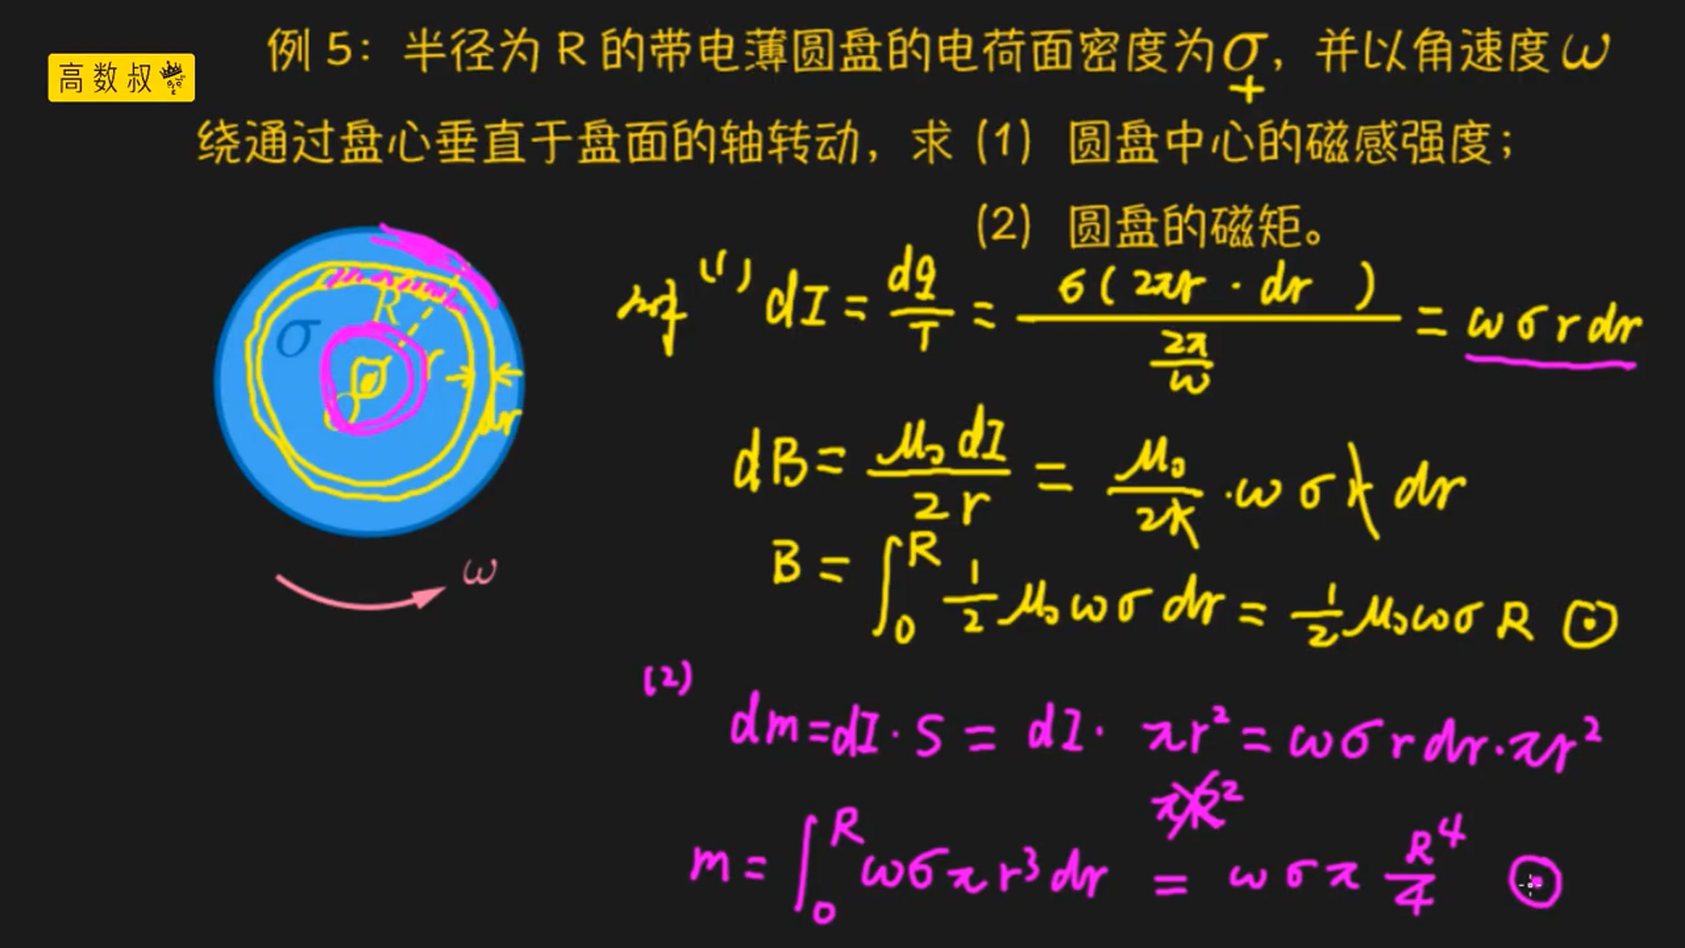 高数叔
例 5：半径为 R 的带电薄圆盘的电荷面密度为σ，并以角速度 ω
+
绕通过盘心垂直于盘面的轴转动，求（1）圆盘中心的磁感强度；
（2）圆盘的磁矩。
R
σ
r
dr
ω
解 (1) dI = dq/T = σ(2πr · dr)/(2π/ω) = ωσrdr
dB = μ₀dI/2r = μ₀/2r · ωσr dr
B = ∫₀ᴿ 1/2 μ₀ωσdr = 1/2 μ₀ωσR ⊙
(2)
dm = dI · S = dI · πr² = ωσrdr · πr²
πR²
m = ∫₀ᴿ ωσπr³dr = ωσπ R⁴/4 ⊙